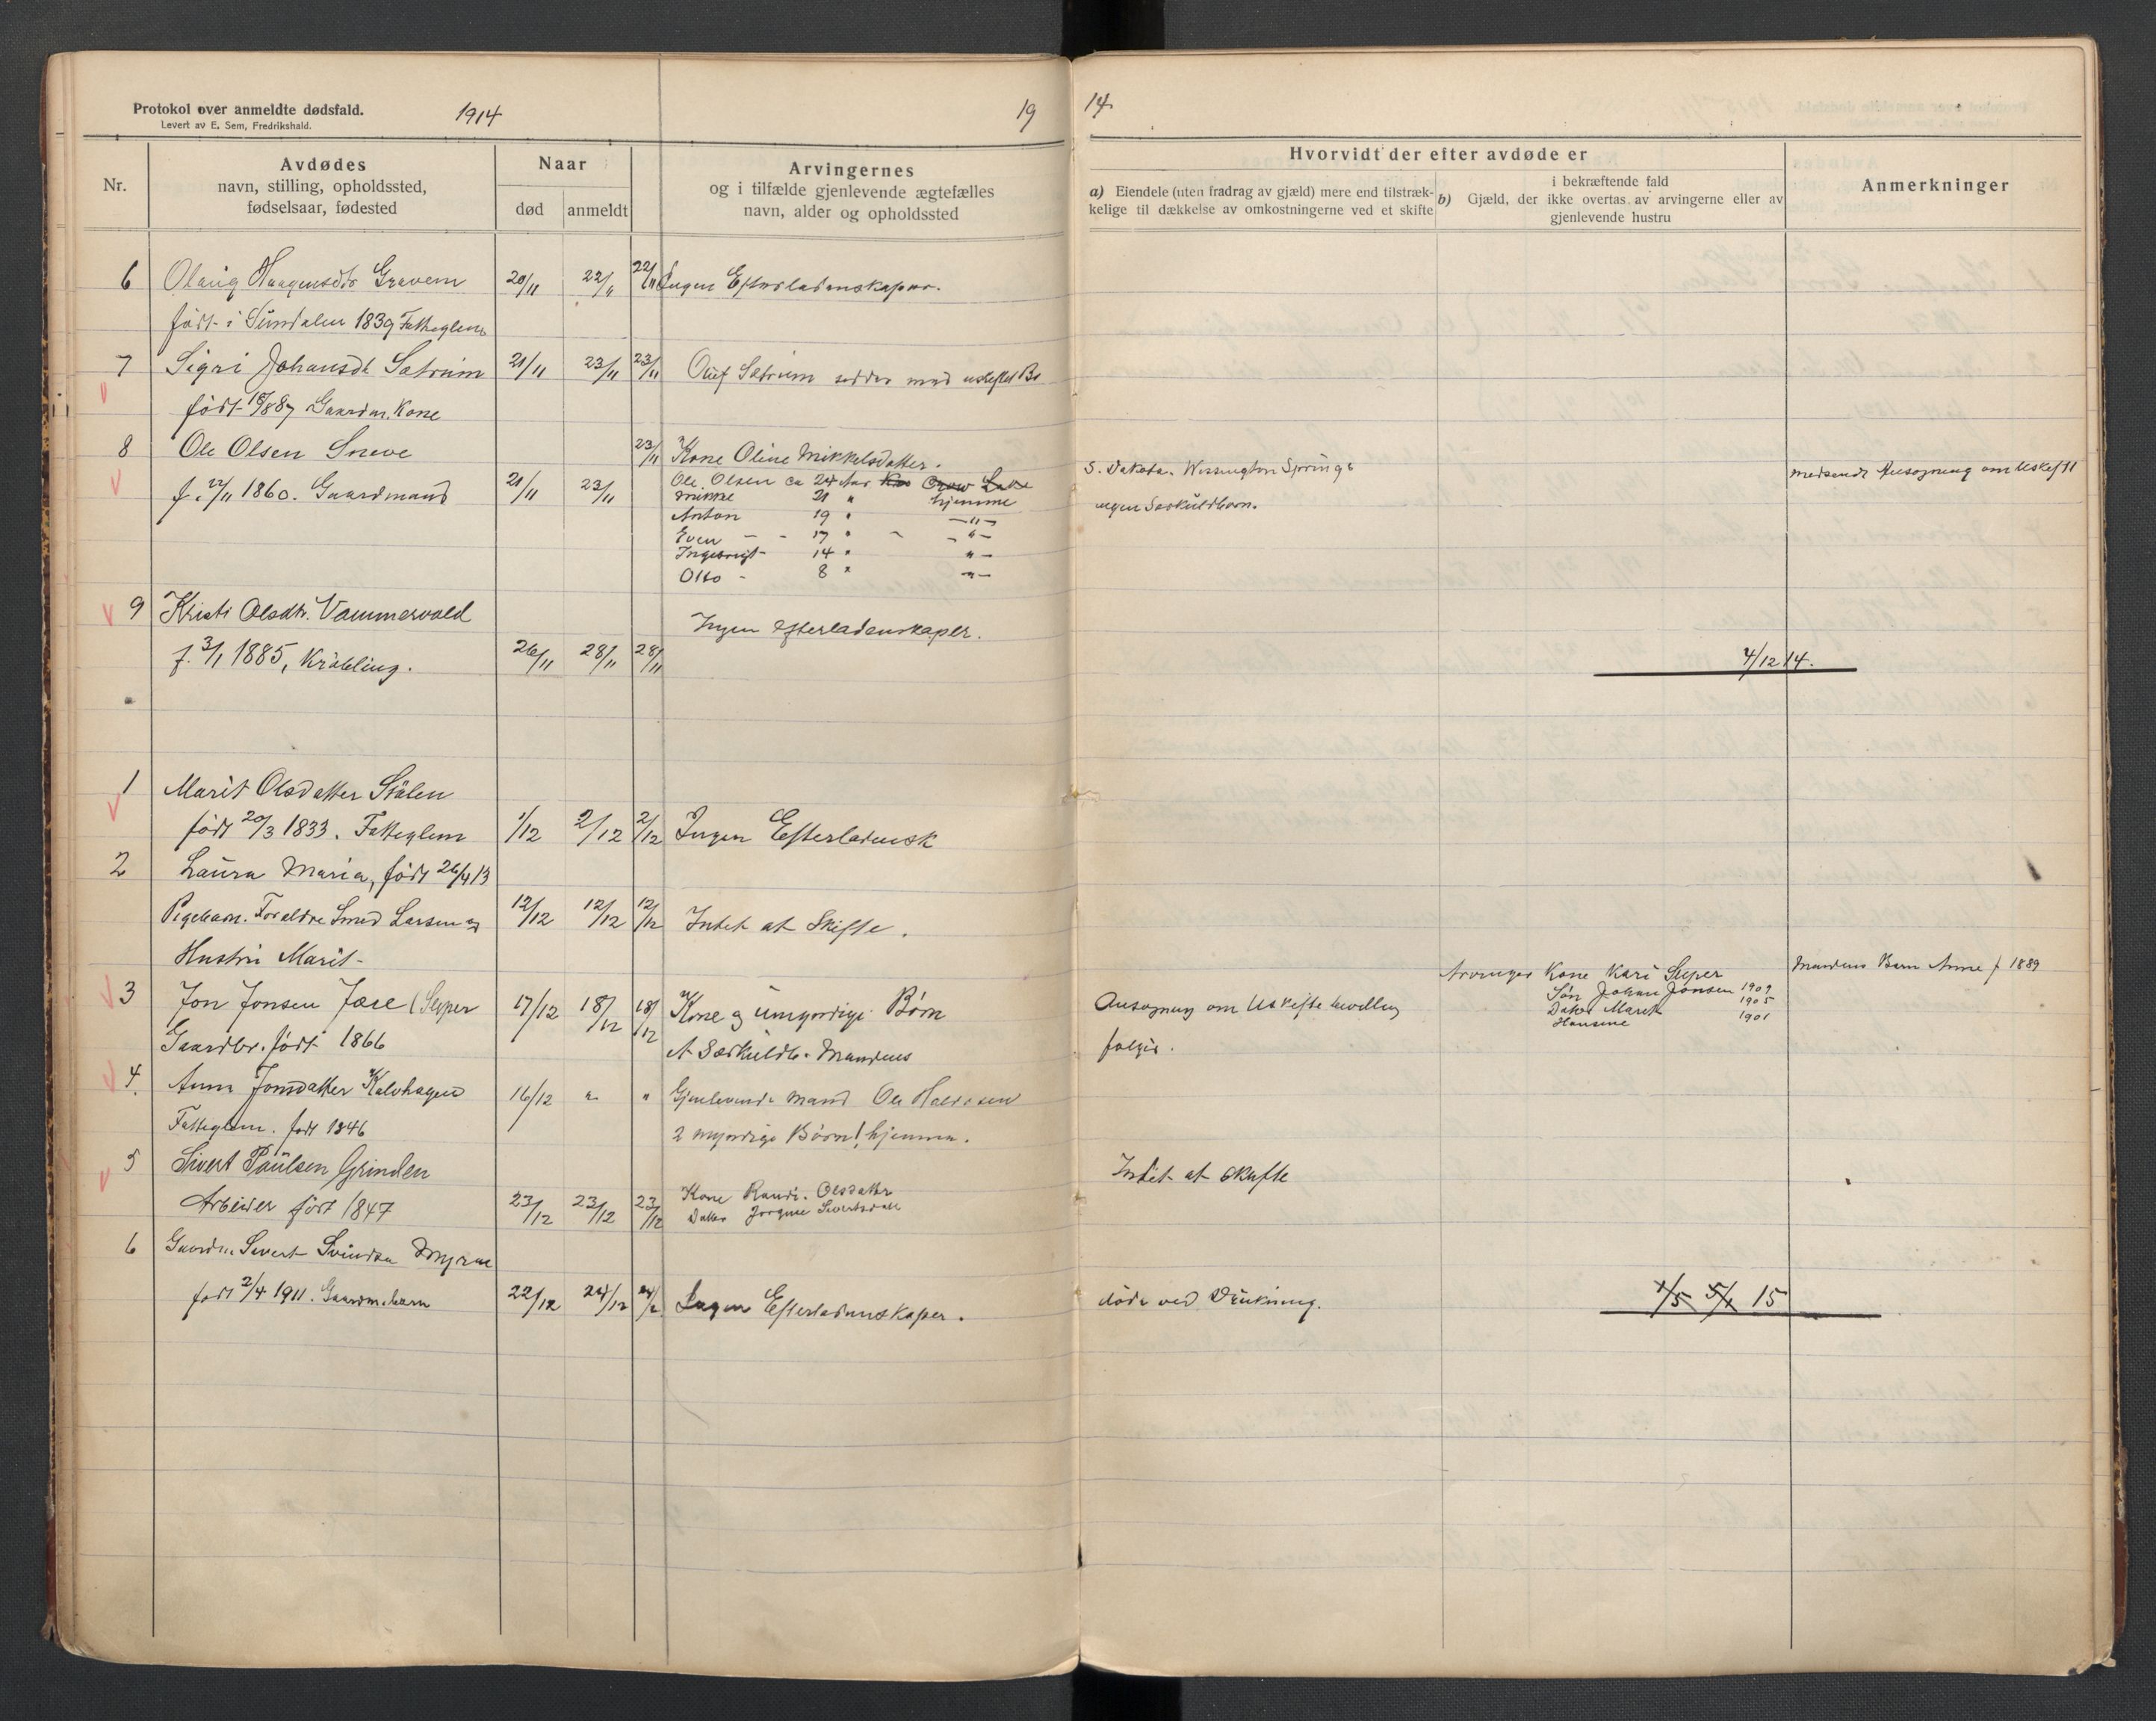 Protokol over anmeldte dødsfald.
Levert av E. Sem, Fredrikshald.
1914
19
14
Nr.
Avdødes
navn, stilling, opholdssted,
fødselsaar, fødested
Naar
død
anmeldt
Arvingernes
og i tilfælde gjenlevende ægtefælles
navn, alder og opholdssted
Hvorvidt der efter avdøde er
a) Eiendele (uten fradrag av gjæld) mere end tilstræk-
kelige til dækkelse av omkostningerne ved et skifte
i bekræftende fald
b) Gjæld, der ikke overtas av arvingerne eller av
gjenlevende hustru
Anmerkninger
6 Olaug Haagensdtr Gravem 20/11 22/11 22/11 Ingen Efterladenskaper.
født i Sundalen 1839 Fatteglem
7 Sigri Johansdt Sætrum 21/11 23/11 23/11 Oluf Sætrum sidder med uskiftet Bo
født 1887 Gaardm. Kone
8 Ole Olsen Sneve 23/11 Kone Oline Mikkelsdatter.
f. 22/11 1860. Gaardmand 21/11 23/11
Ole Olsen ca 24 Aar Crow Lake S. Dakota. Wessington Springs
Mikkel 21 " hjemme
Anton 19 " —"—
Even - - 17 " - —"—
Ingebrigt - 14 " "—
Otto - 8 " "—
ingen Særkuldbarn.
medsendt Ansøgning om Uskift
9 Kristi Olsdtr. Vammervold
f. 3/1 1885, Kröbling. 26/11 28/11 28/11 Ingen Efterladenskaper.
4/12 14.
1 Marit Olsdatter Stölen
født 20/3 1833. Fatteglem 1/12 2/12 2/12 Ingen Efterladensk
2 Laura Maria, født 26/4 13
Pigebarn. Foreldre Smed Larsen og 12/12 12/12 12/12 Intet at Skifte.
Hustru Marit
3 Jon Jonsen Jære (Slyper 17/12 18/12 18/12 Kone og umyndige Børn
Gaardbr. født 1866 et Særkuldb. Mandens
Ansøgning om Uskiftebevilling
følger.
Arvinger Kone Kari Slyper
Søn Johan Jonsen 1909
Datter Marit 1905
Hansine 1901
Mandens Barn Anne f 1889
4. Anne Jonsdatter Kalvhagen 16/12 " " Gjenlevende Mand Ole Halvorsen
Fatteglem. født 1846 2 myndige Börn! hjemme.
5 Sivert Paulsen Grinden
Arbeider født 1847 23/12 23/12 23/12 Kone Randi. Olsdatter
Datter Jorgine Sivertsdatt
Intet at skifte
6 Gaardm. Sivert Svendsen Myren
født 2/4 1911. Gaardm. barn 22/12 24/12 24/12 Ingen Efterladenskaper.
døde ved Drukning.
5/1 15